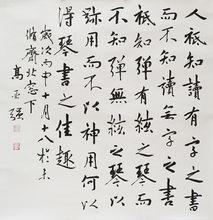 人祇知讀有字之書
而不知讀無字之書
祇知彈有絃之琴而
不知彈無絃之琴以
跡用而不以神用何以
得琴書之佳趣
歲次丙申十月十八於未
齋北窗下
高